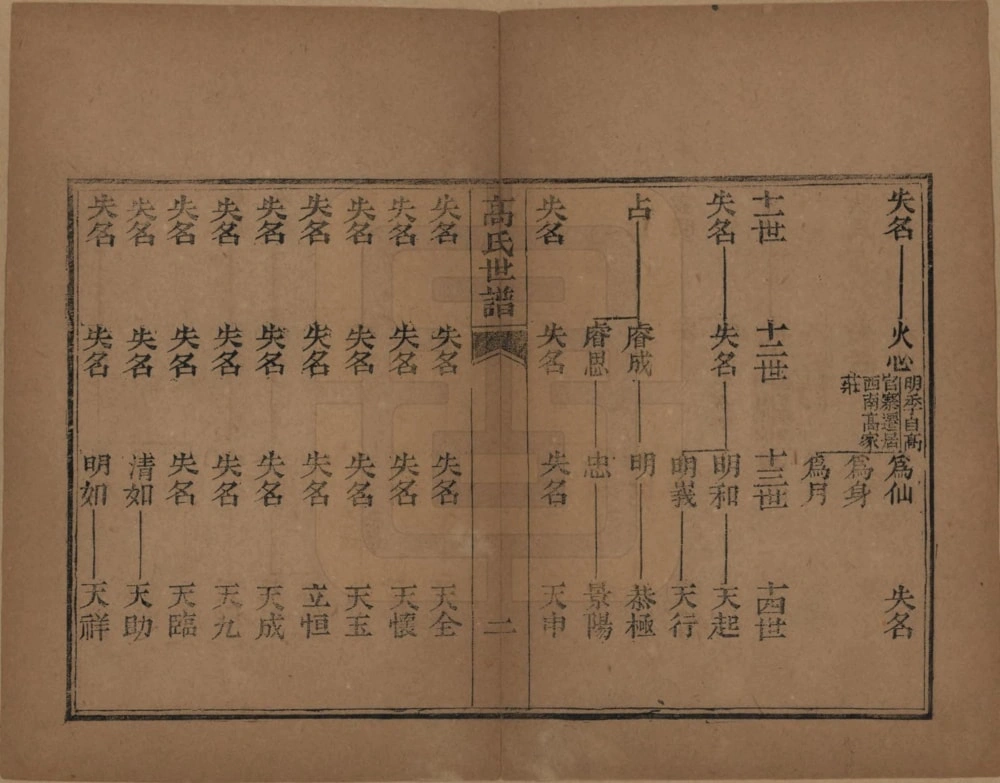 失名 火心 明季自高官寨遷居西南高家莊 爲仙 失名
爲身
爲月
十一世 十二世 十三世 十四世
失名 失名 明和 天起
明義 天行
占 睿成 明 恭極
睿思 忠 景陽
失名 失名 失名 天申
高氏世譜 二
失名 失名 失名 天全
失名 失名 失名 天懷
失名 失名 失名 天玉
失名 失名 失名 立恒
失名 失名 失名 天成
失名 失名 失名 天九
失名 失名 失名 天臨
失名 失名 清如 天助
失名 失名 明如 天祥